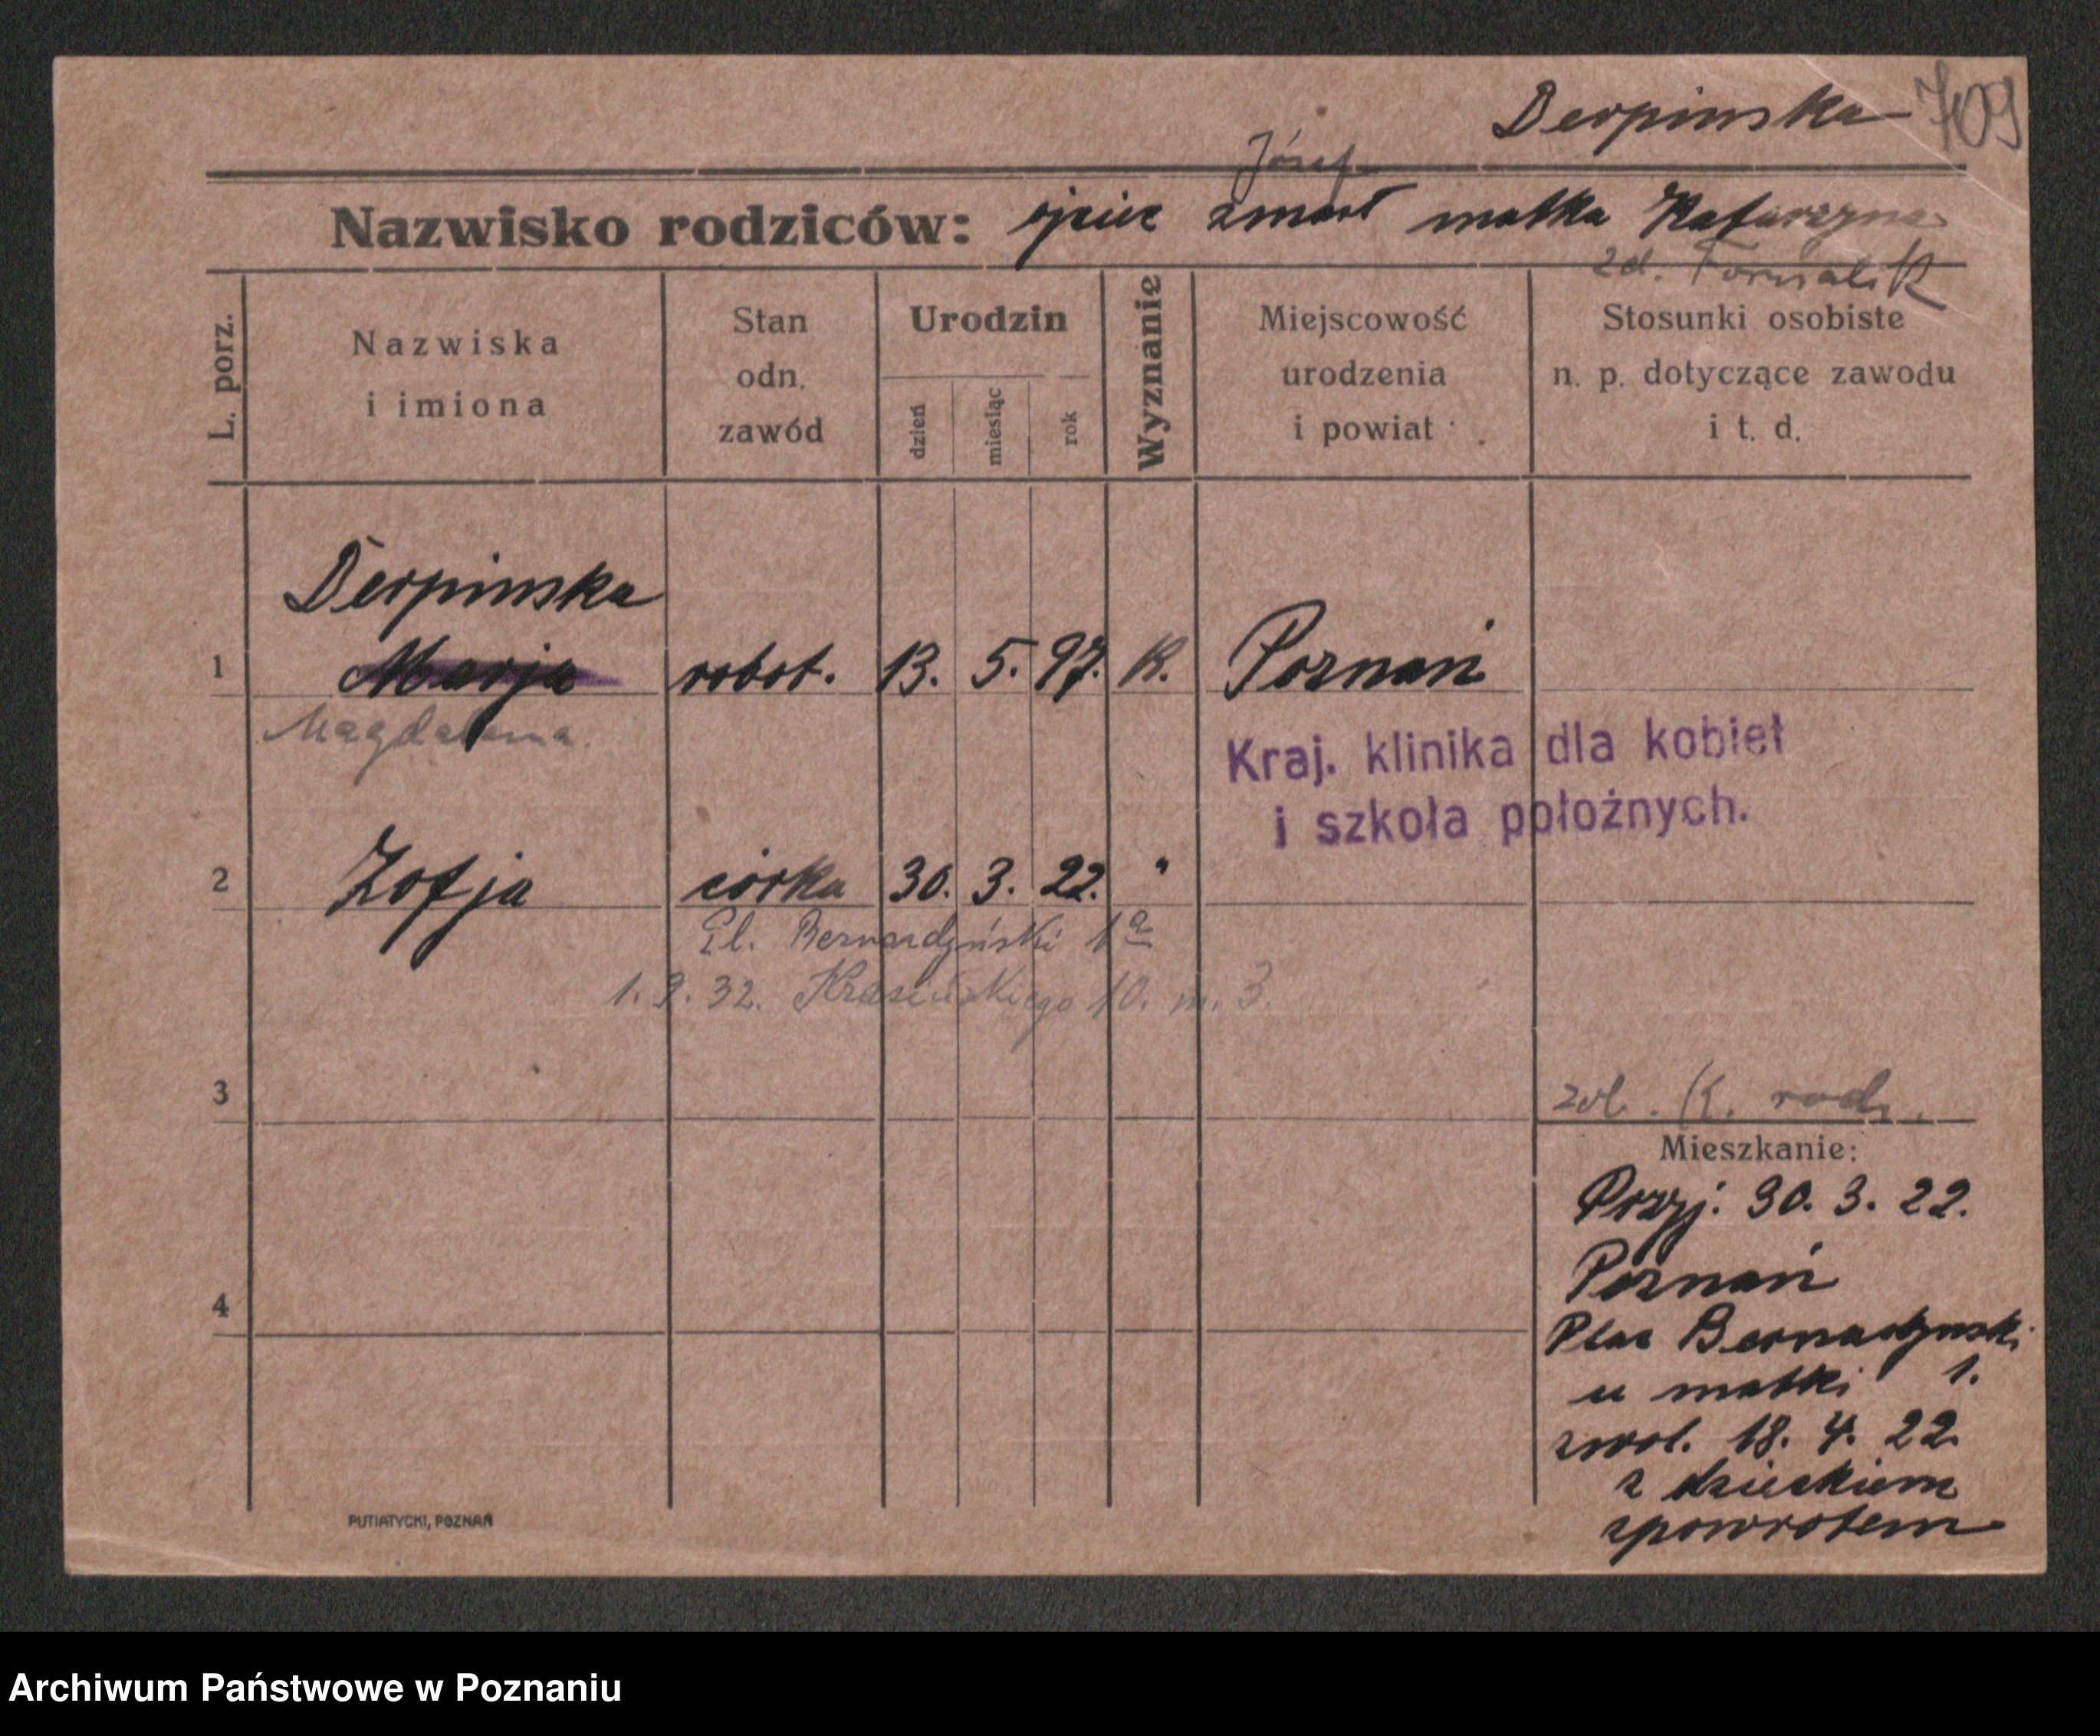 Derpinska 709
Józef
Nazwisko rodziców: ojciec zmarł matka Katarzyna
zd.
L. porz.
Nazwiska i imiona
Stan odn. zawód
Urodzin
dzień miesiąc rok
Wyznanie
Miejscowość urodzenia i powiat
Stosunki osobiste n. p. dotyczące zawodu i t. d.
Derpinska
1 Marja robot. 13. 5. 97. K. Poznań
Magdalena.
Kraj. klinika dla kobiet
i szkoła położnych.
2 Zofja córka 30. 3. 22. "
Pl. Bernardyński 1a
1.9.32. Krasińskiego 10. m. 3.
3
zob. K. rodz.
Mieszkanie:
Przyj: 30. 3. 22.
Poznań
4
Plac Bernadynski
u matki 1.
zwol. 18. 4. 22
z dzieckiem
zpowrotem
PUTIATYCKI, POZNAŃ
Archiwum Państwowe w Poznaniu